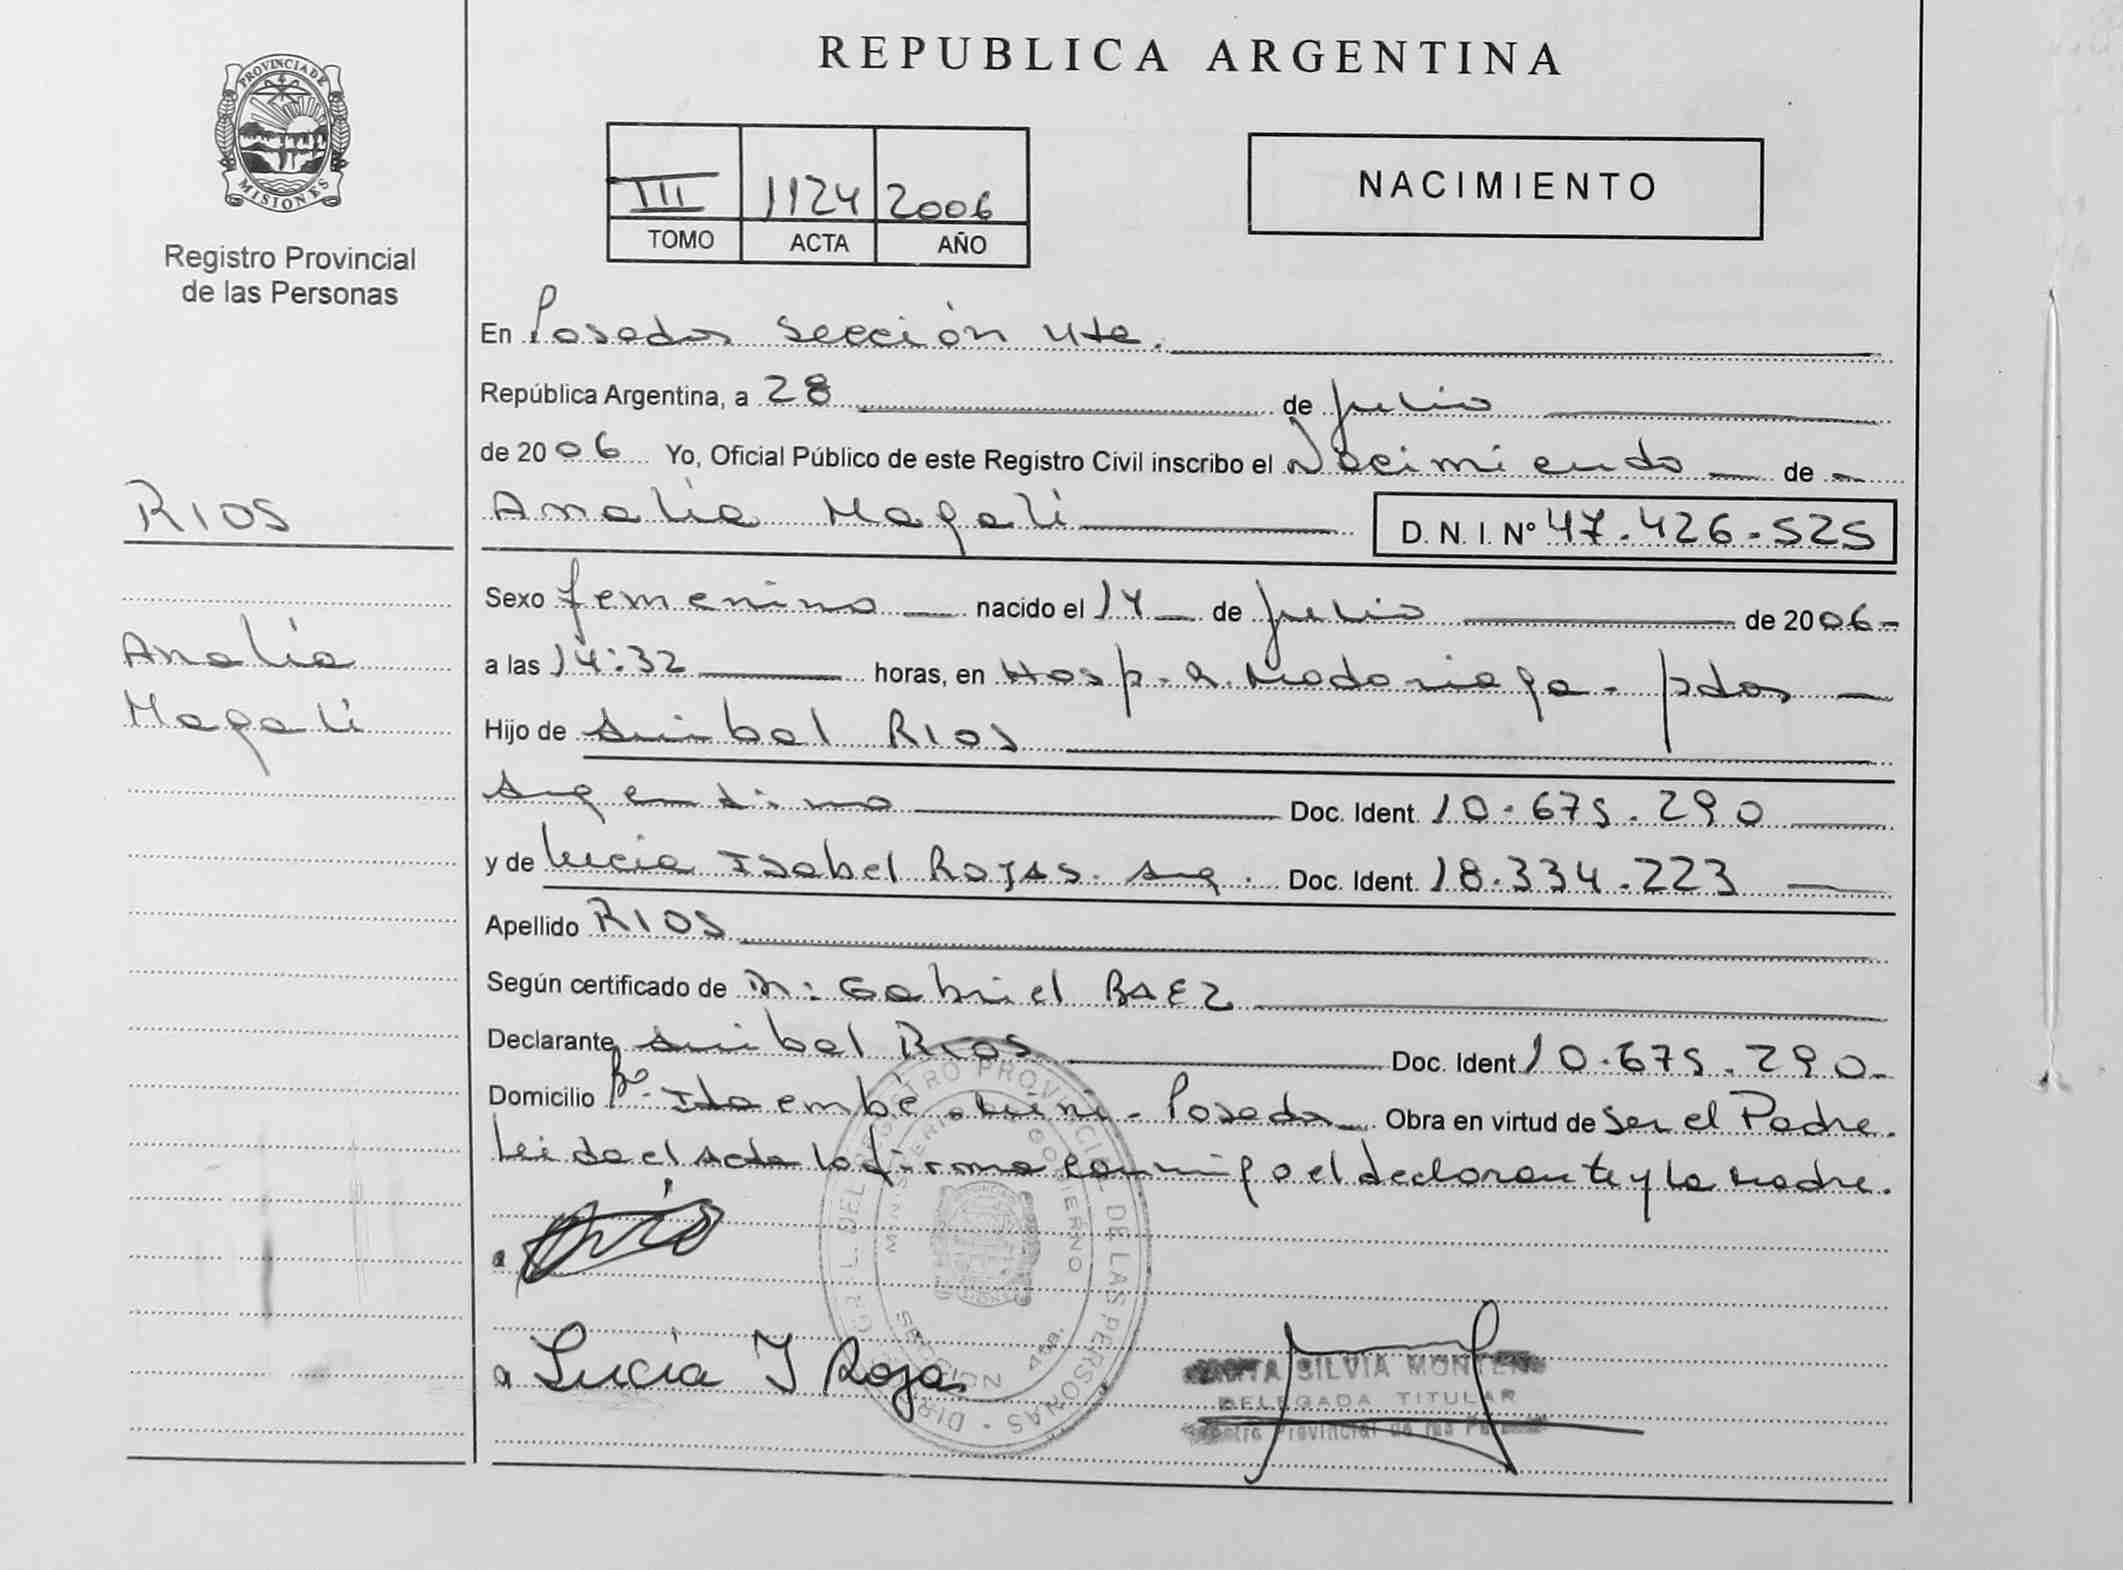 REPUBLICA ARGENTINA
PROVINCIA DE
MISIONES
Registro Provincial
de las Personas
III 1124 2006
TOMO ACTA AÑO
NACIMIENTO
En Posadas Sección 4ta.
República Argentina, a 28 de julio
de 2006 Yo, Oficial Público de este Registro Civil inscribo el Nacimiento de
RIOS
Analía Magalí D. N. I. Nº 47.426.525
Sexo femenino nacido el 14 de julio de 2006
Analía
a las 14:32 horas, en Hosp. R. Madariaga. pdas
Magalí
Hijo de Anibal RIOS
Argentino Doc. Ident. 10.675.290
y de Lucia Isabel ROJAS. Arg. Doc. Ident. 18.334.223
Apellido RIOS
Según certificado de Dr: Gabriel BAEZ
Declarante Anibal Rios Doc. Ident 10.675.290
Domicilio Bº. Ita embé miní. Posadas Obra en virtud de Ser el Padre.
Leida el Acta la firma conmigo el declarante y la madre.
DIR. GRAL. DEL REGISTRO PROVINCIAL DE LAS PERSONAS
MINISTERIO DE GOBIERNO
SECCION 4ta.
Lucía I Rojas
SILVIA MONTERO
DELEGADA TITULAR
Registro Provincial de las Personas